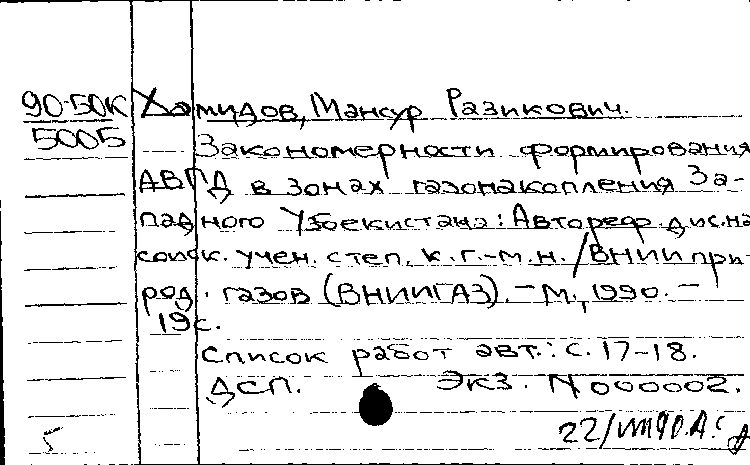 90-50К Хамидов, Мансур Разикович.
5005 Закономерности формирования
АВПД в зонах газонакопления За-
падного Узбекистана: Автореф. дис. на
соиск. учен. степ. к.г.-м.н. /ВНИИ при-
род. газов (ВНИИГАЗ). - М., 1990. -
19 с.
Список работ авт.: с. 17-18.
ДСП. Экз. N 000002.
5 22/VIII 90